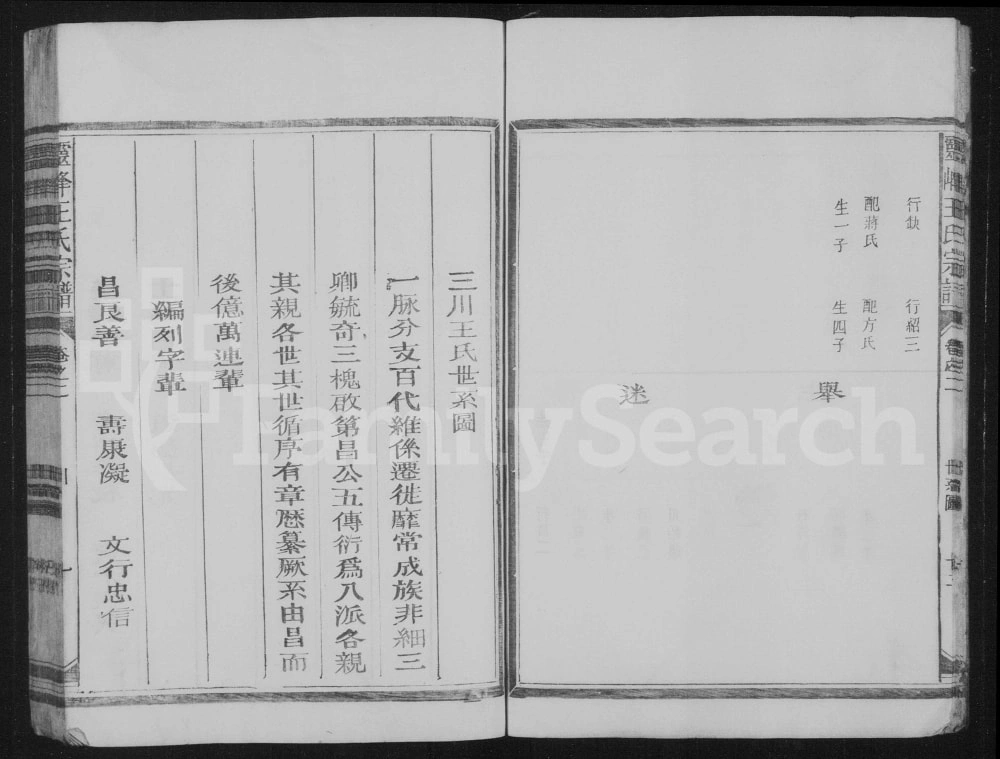 王氏宗譜
行缺
配蔣氏
生一子
行紹三
配方氏
生四子
舉
迷
三川王氏世系圖
一脉分支百代維係遷徙靡常成族非細三
卿毓奇三槐啟第昌公五傳衍爲八派各親
其親各世其世循序有章歷纂厥系由昌而
後億萬連輩
編列字輩
昌艮善 壽康凝 文行忠信
靈峰王氏宗譜
FamilySearch